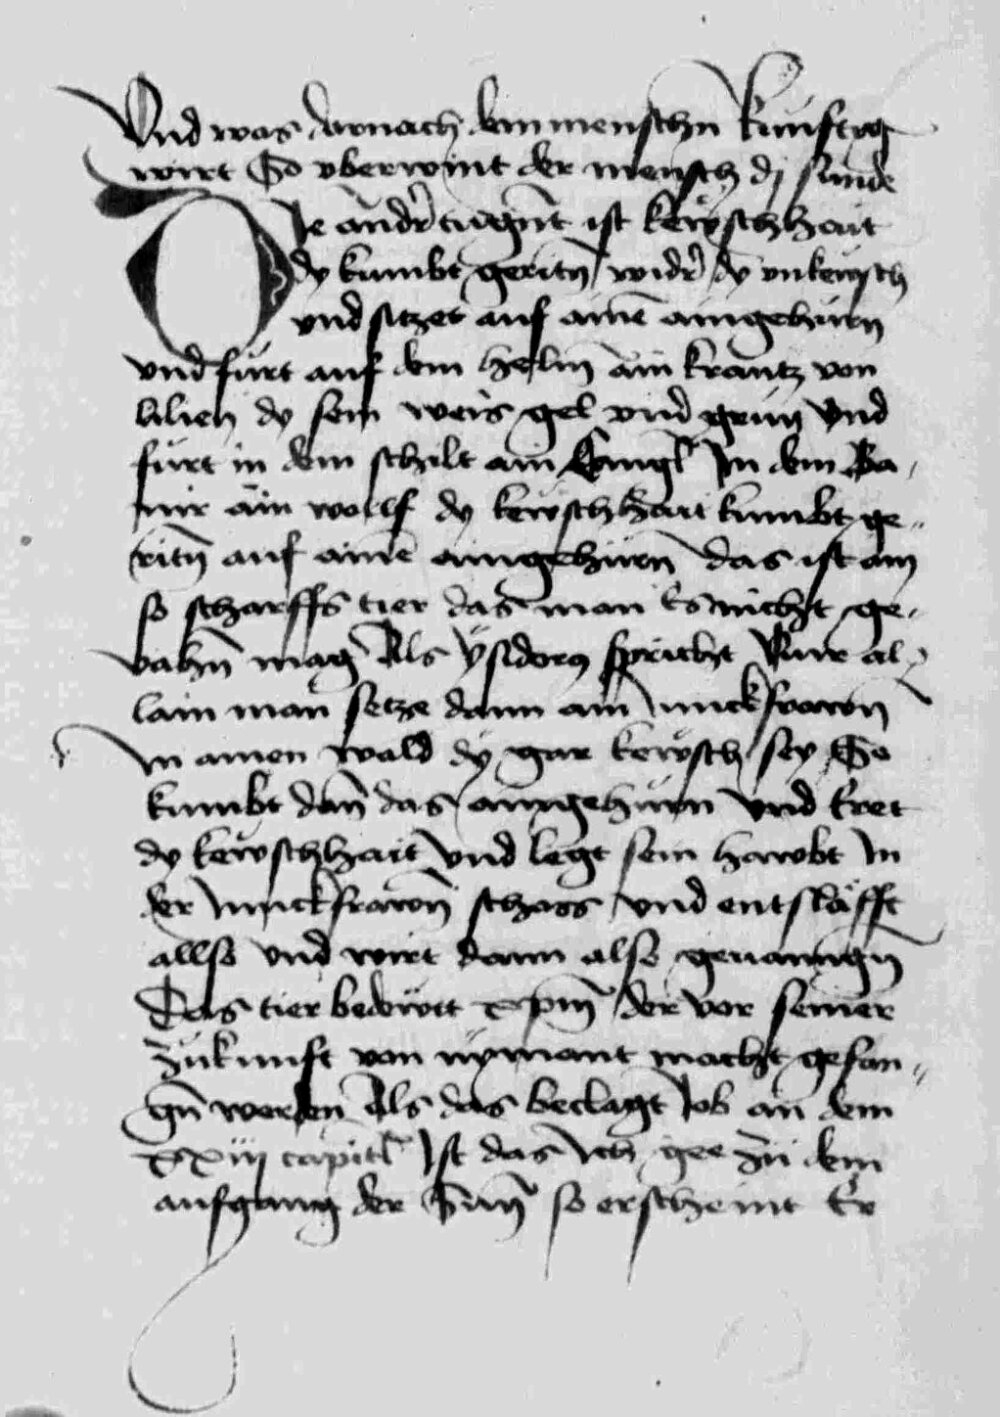 Und was darnach dem menschn kunftig
wirt So vberwint der mensch dj sunde
Die andr̃ tugn̄t ist kewschhait
dy kumbt geritn̄ widr̃ dy vnkewsch
vnd sitzet auf ainē aingehurn
vnd furt auf dem helm ain krantz von
lilien dy sein weis gel vnd grun vnd
furt in dem schilt ain Engl In dem Ba⸗
nir ain wollf dy kewschhait kumbt ge⸗
ritn̄ auf ainē aingehurn das ist ain
so scharffs tier das man Es nicht ge⸗
vahn̄ mag Als ÿsidorꝰ spricht Nur al⸗
lain man setze dann ain Junckfrawn̄
In ainen wald dÿ gar kewsch sey So
kumbt dan̄ das aingehurn vnd Eret
dy kewschhait vnd legt sein hawbt In
der Junckfrawn̄ schoss vnd entslafft
allso vnd wirt dann also geuanngn̄
Das tier bedewtt xpm̄ der vor seiner
zukunft von nymant macht gefan⸗
gn̄ werden Als das beclagt Job an dem
xxiij capitl Ist das Ich gee zu dem
aufgang der Sun̄ so erscheint Er